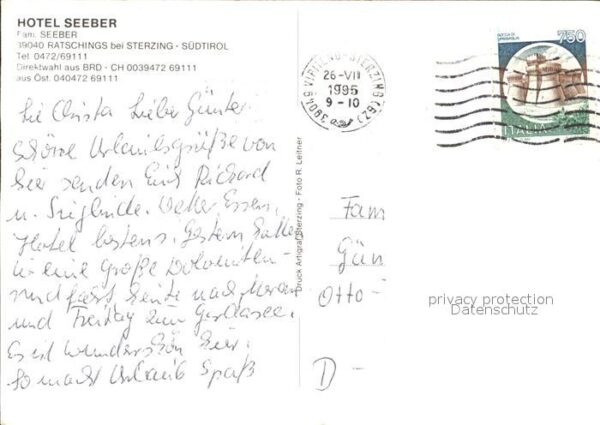 HOTEL SEEBER
Fam. SEEBER
39040 RATSCHINGS bei STERZING - SÜDTIROL
Tel. 0472/69111
Direktwahl aus BRD - CH 0039472 69111
aus Öst. 040472 69111
750
ITALIA
39049 VIPITENO-STERZING (BZ)
26-VII
1995
9-10
Christa Lieber Günter
schöne Urlaubsgrüße von
hier senden Euch Richard
u. Sieglinde. Wetter Essen,
Hotel bestens. Gestern hatten
wir eine große Dolomiten-
rundfahrt heute nach Meran
und Freitag zum Gardasee.
Es ist wunderschön hier.
So macht Urlaub Spaß
Druck Artigraf Sterzing - Foto R. Leitner
Fam
Gün
Otto-
D-
privacy protection
Datenschutz